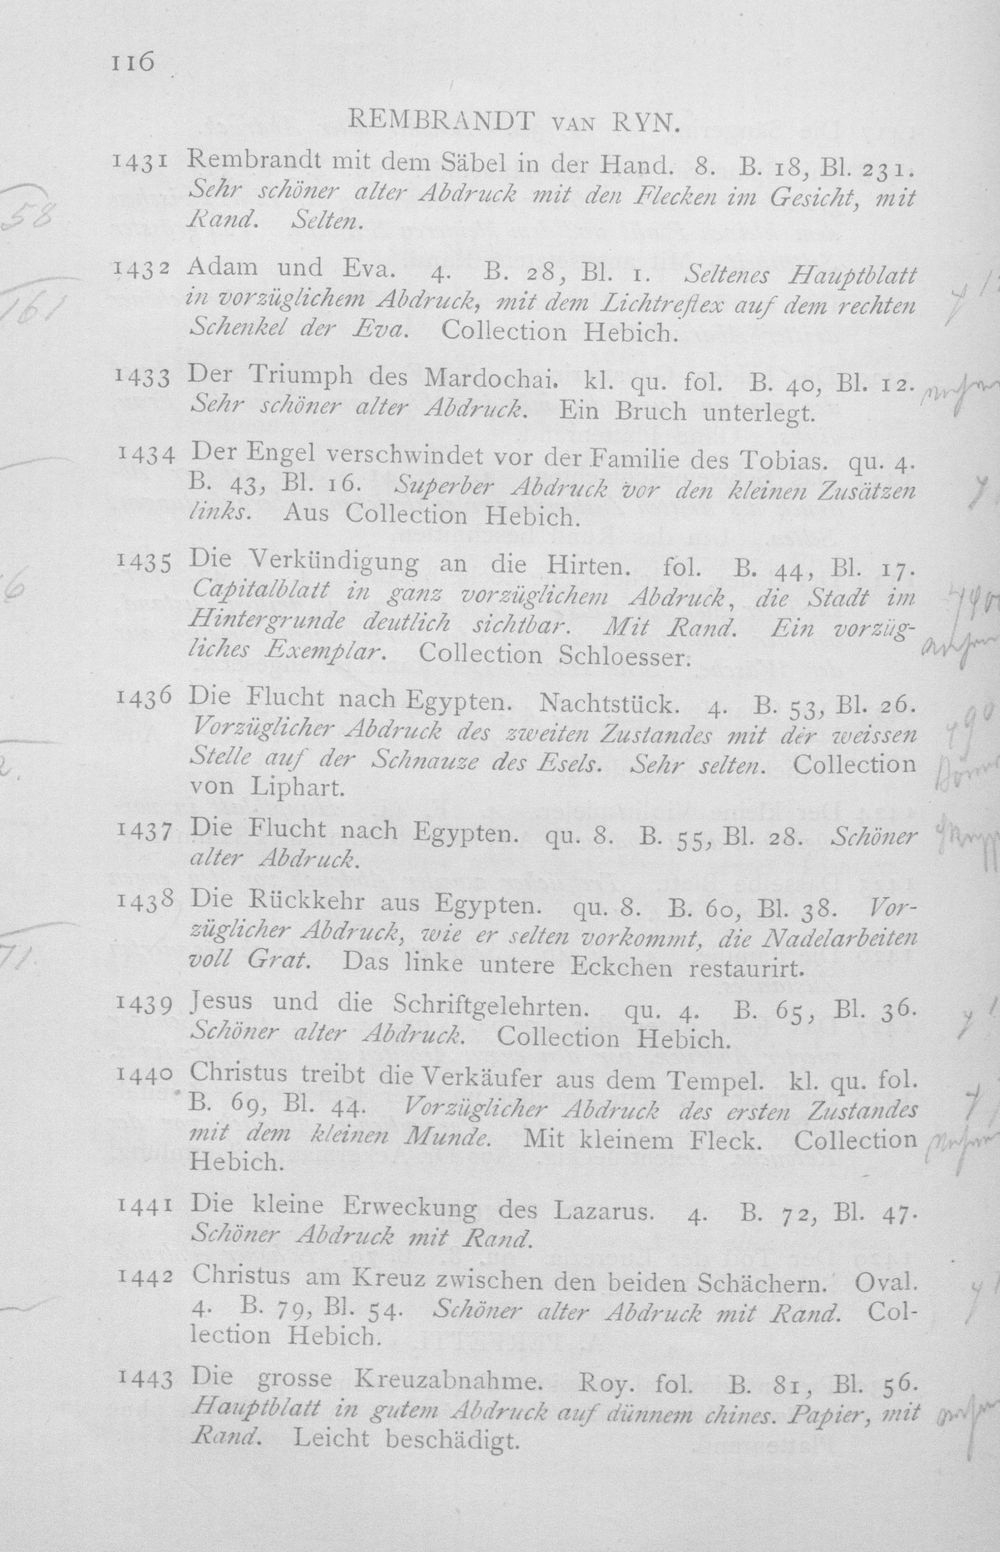 116
REMBRANDT VAN RYN.
1431 Rembrandt mit dem Säbel in der Hand. 8. B. 18, Bl. 231.
Sehr schöner alter Abdruck mit den Flecken im Gesicht, mit
Rand. Selten.
58
1432 Adam und Eva. 4. B. 28, Bl. 1. Seltenes Hauptblatt
in vorzüglichem Abdruck, mit dem Lichtreflex auf dem rechten
Schenkel der Eva. Collection Hebich.
161
1433 Der Triumph des Mardochai. kl. qu. fol. B. 40, Bl. 12.
Sehr schöner alter Abdruck. Ein Bruch unterlegt.
1434 Der Engel verschwindet vor der Familie des Tobias. qu. 4.
B. 43, Bl. 16. Superber Abdruck vor den kleinen Zusätzen
links. Aus Collection Hebich.
1435 Die Verkündigung an die Hirten. fol. B. 44, Bl. 17.
Capitalblatt in ganz vorzüglichem Abdruck, die Stadt im
Hintergrunde deutlich sichtbar. Mit Rand. Ein vorzüg-
liches Exemplar. Collection Schloesser.
1436 Die Flucht nach Egypten. Nachtstück. 4. B. 53, Bl. 26.
Vorzüglicher Abdruck des zweiten Zustandes mit der weissen
Stelle auf der Schnauze des Esels. Sehr selten. Collection
von Liphart.
1437 Die Flucht nach Egypten. qu. 8. B. 55, Bl. 28. Schöner
alter Abdruck.
1438 Die Rückkehr aus Egypten. qu. 8. B. 60, Bl. 38. Vor-
züglicher Abdruck, wie er selten vorkommt, die Nadelarbeiten
voll Grat. Das linke untere Eckchen restaurirt.
71
1439 Jesus und die Schriftgelehrten. qu. 4. B. 65, Bl. 36.
Schöner alter Abdruck. Collection Hebich.
1440 Christus treibt die Verkäufer aus dem Tempel. kl. qu. fol.
B. 69, Bl. 44. Vorzüglicher Abdruck des ersten Zustandes
mit dem kleinen Munde. Mit kleinem Fleck. Collection
Hebich.
1441 Die kleine Erweckung des Lazarus. 4. B. 72, Bl. 47.
Schöner Abdruck mit Rand.
1442 Christus am Kreuz zwischen den beiden Schächern. Oval.
4. B. 79, Bl. 54. Schöner alter Abdruck mit Rand. Col-
lection Hebich.
1443 Die grosse Kreuzabnahme. Roy. fol. B. 81, Bl. 56.
Hauptblatt in gutem Abdruck auf dünnem chines. Papier, mit
Rand. Leicht beschädigt.